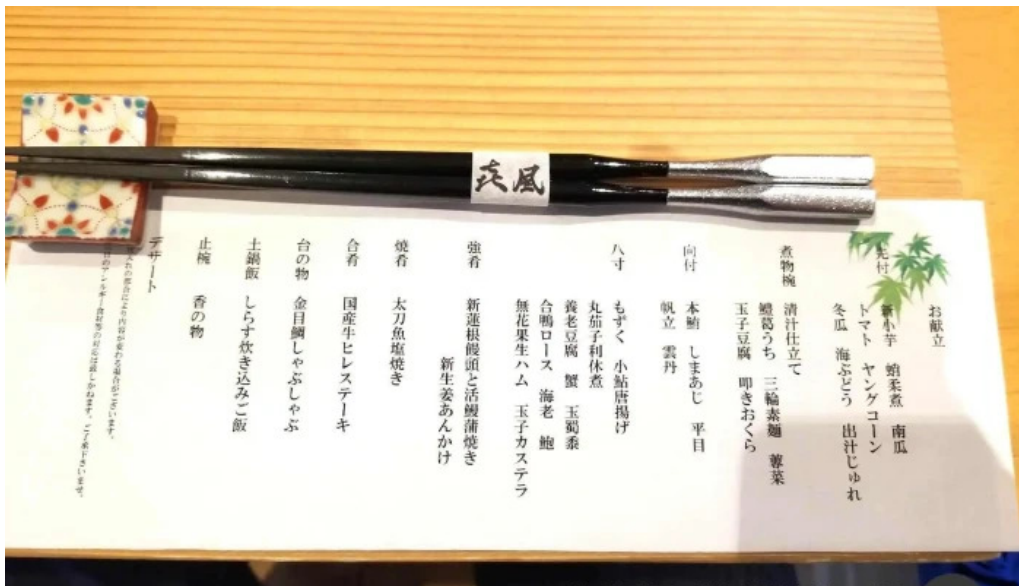 㐂風
お献立
先付 新小芋 蛸柔煮 南瓜
トマト ヤングコーン
冬瓜 海ぶどう 出汁じゅれ
煮物椀 清汁仕立て
鱧葛うち 三輪素麺 蓴菜
玉子豆腐 叩きおくら
向付 本鮪 しまあじ 平目
帆立 雲丹
八寸 もずく 小鮎唐揚げ
丸茄子利休煮
養老豆腐 蟹 玉蜀黍
合鴨ロース 海老 鮑
無花果生ハム 玉子カステラ
強肴 新蓮根饅頭と活鰻蒲焼き
新生姜あんかけ
焼肴 太刀魚塩焼き
合肴 国産牛ヒレステーキ
台の物 金目鯛しゃぶしゃぶ
土鍋飯 しらす炊き込みご飯
止椀 香の物
デザート
入れの都合により内容が変わる場合がございます。
当日のアレルギー食材等の対応は致しかねます。ご了承下さいませ。